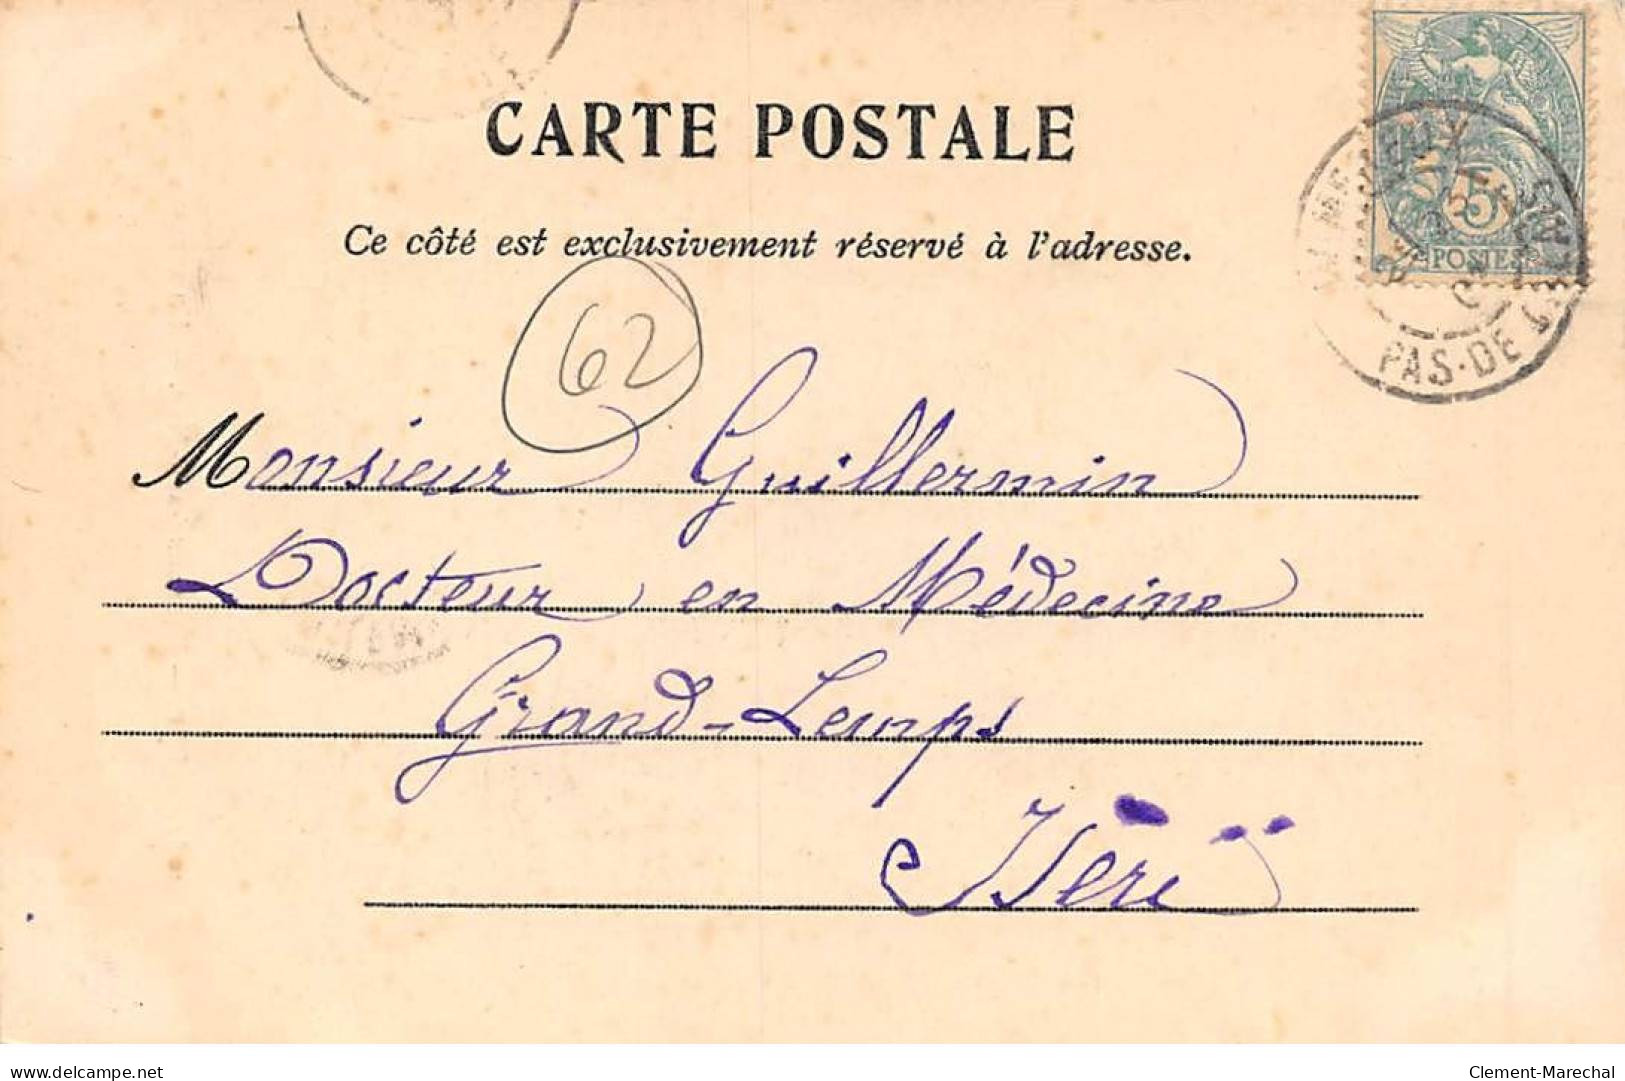 CARTE POSTALE
Ce côté est exclusivement réservé à l'adresse.
5
POSTES
PAS-DE-CA
62
Monsieur Guillermin
Docteur en Médecine
Grand-Lemps
Isère
delcampe.net
Clement-Marechal